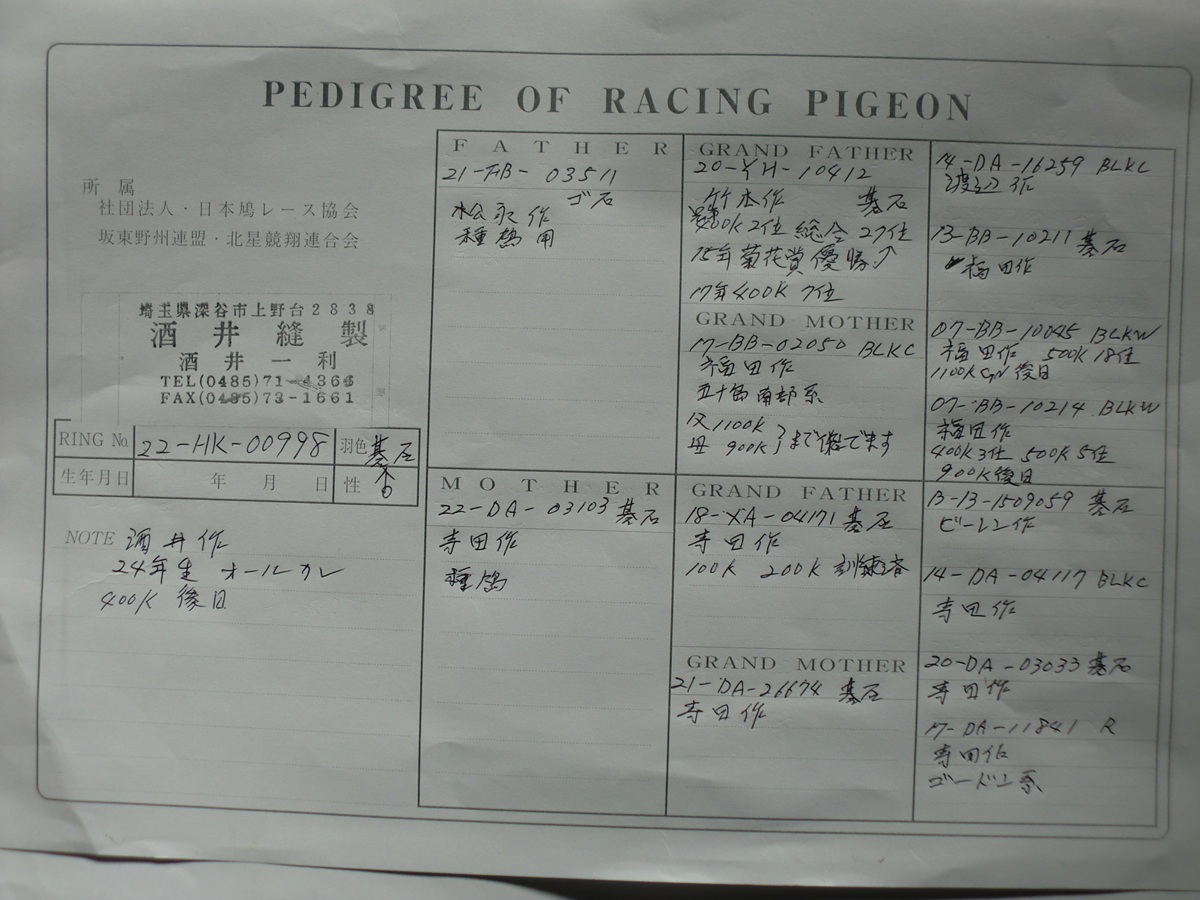 PEDIGREE OF RACING PIGEON
所属
社団法人・日本鳩レース協会
坂東野州連盟・北星競翔連合会
埼玉県深谷市上野台2838
酒井縫製
酒井一利
TEL(0485)71-4364
FAX(0485)73-1661
RING No. 22-HK-00998 羽色 碁石
生年月日 年 月 日 性
NOTE 酒井作
24年生 オールカレ
400K 後日
FATHER
21-FB-03511
ゴ石
松永作
種鴿用
MOTHER
22-DA-03103 碁石
寺田作
種鴿
GRAND FATHER
20-YH-10412
竹本作 碁石
400K2位 総合27位
15年菊花賞優勝
17年400K 7位
GRAND MOTHER
17-BB-02050 BLKC
福田作
五十嵐南部系
父1100K
母 900K まで
GRAND FATHER
18-XA-04171 碁石
寺田作
100K 200K 訓練済
GRAND MOTHER
21-DA-26674 碁石
寺田作
14-DA-16259 BLKC
渡辺作
13-BB-10211 碁石
福田作
07-BB-10045 BLKW
福田作 500K18位
1100K 後日
07-BB-10214 BLKW
福田作
400K3位 500K5位
900K後日
13-13-1509059 碁石
ビーレン作
14-DA-04117 BLKC
寺田作
20-DA-03033 碁石
寺田作
17-DA-11841 R
寺田作
ゴードン系